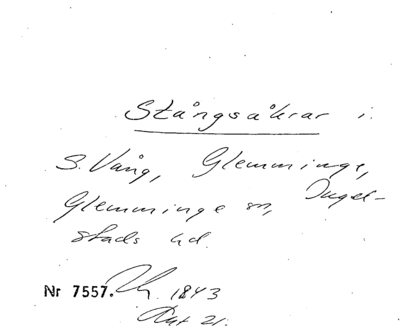 Stångsåkrar i
S. Vång, Glemminge,
Glemminge sn, Ingel-
stads hd.
Nr 7557. 1843